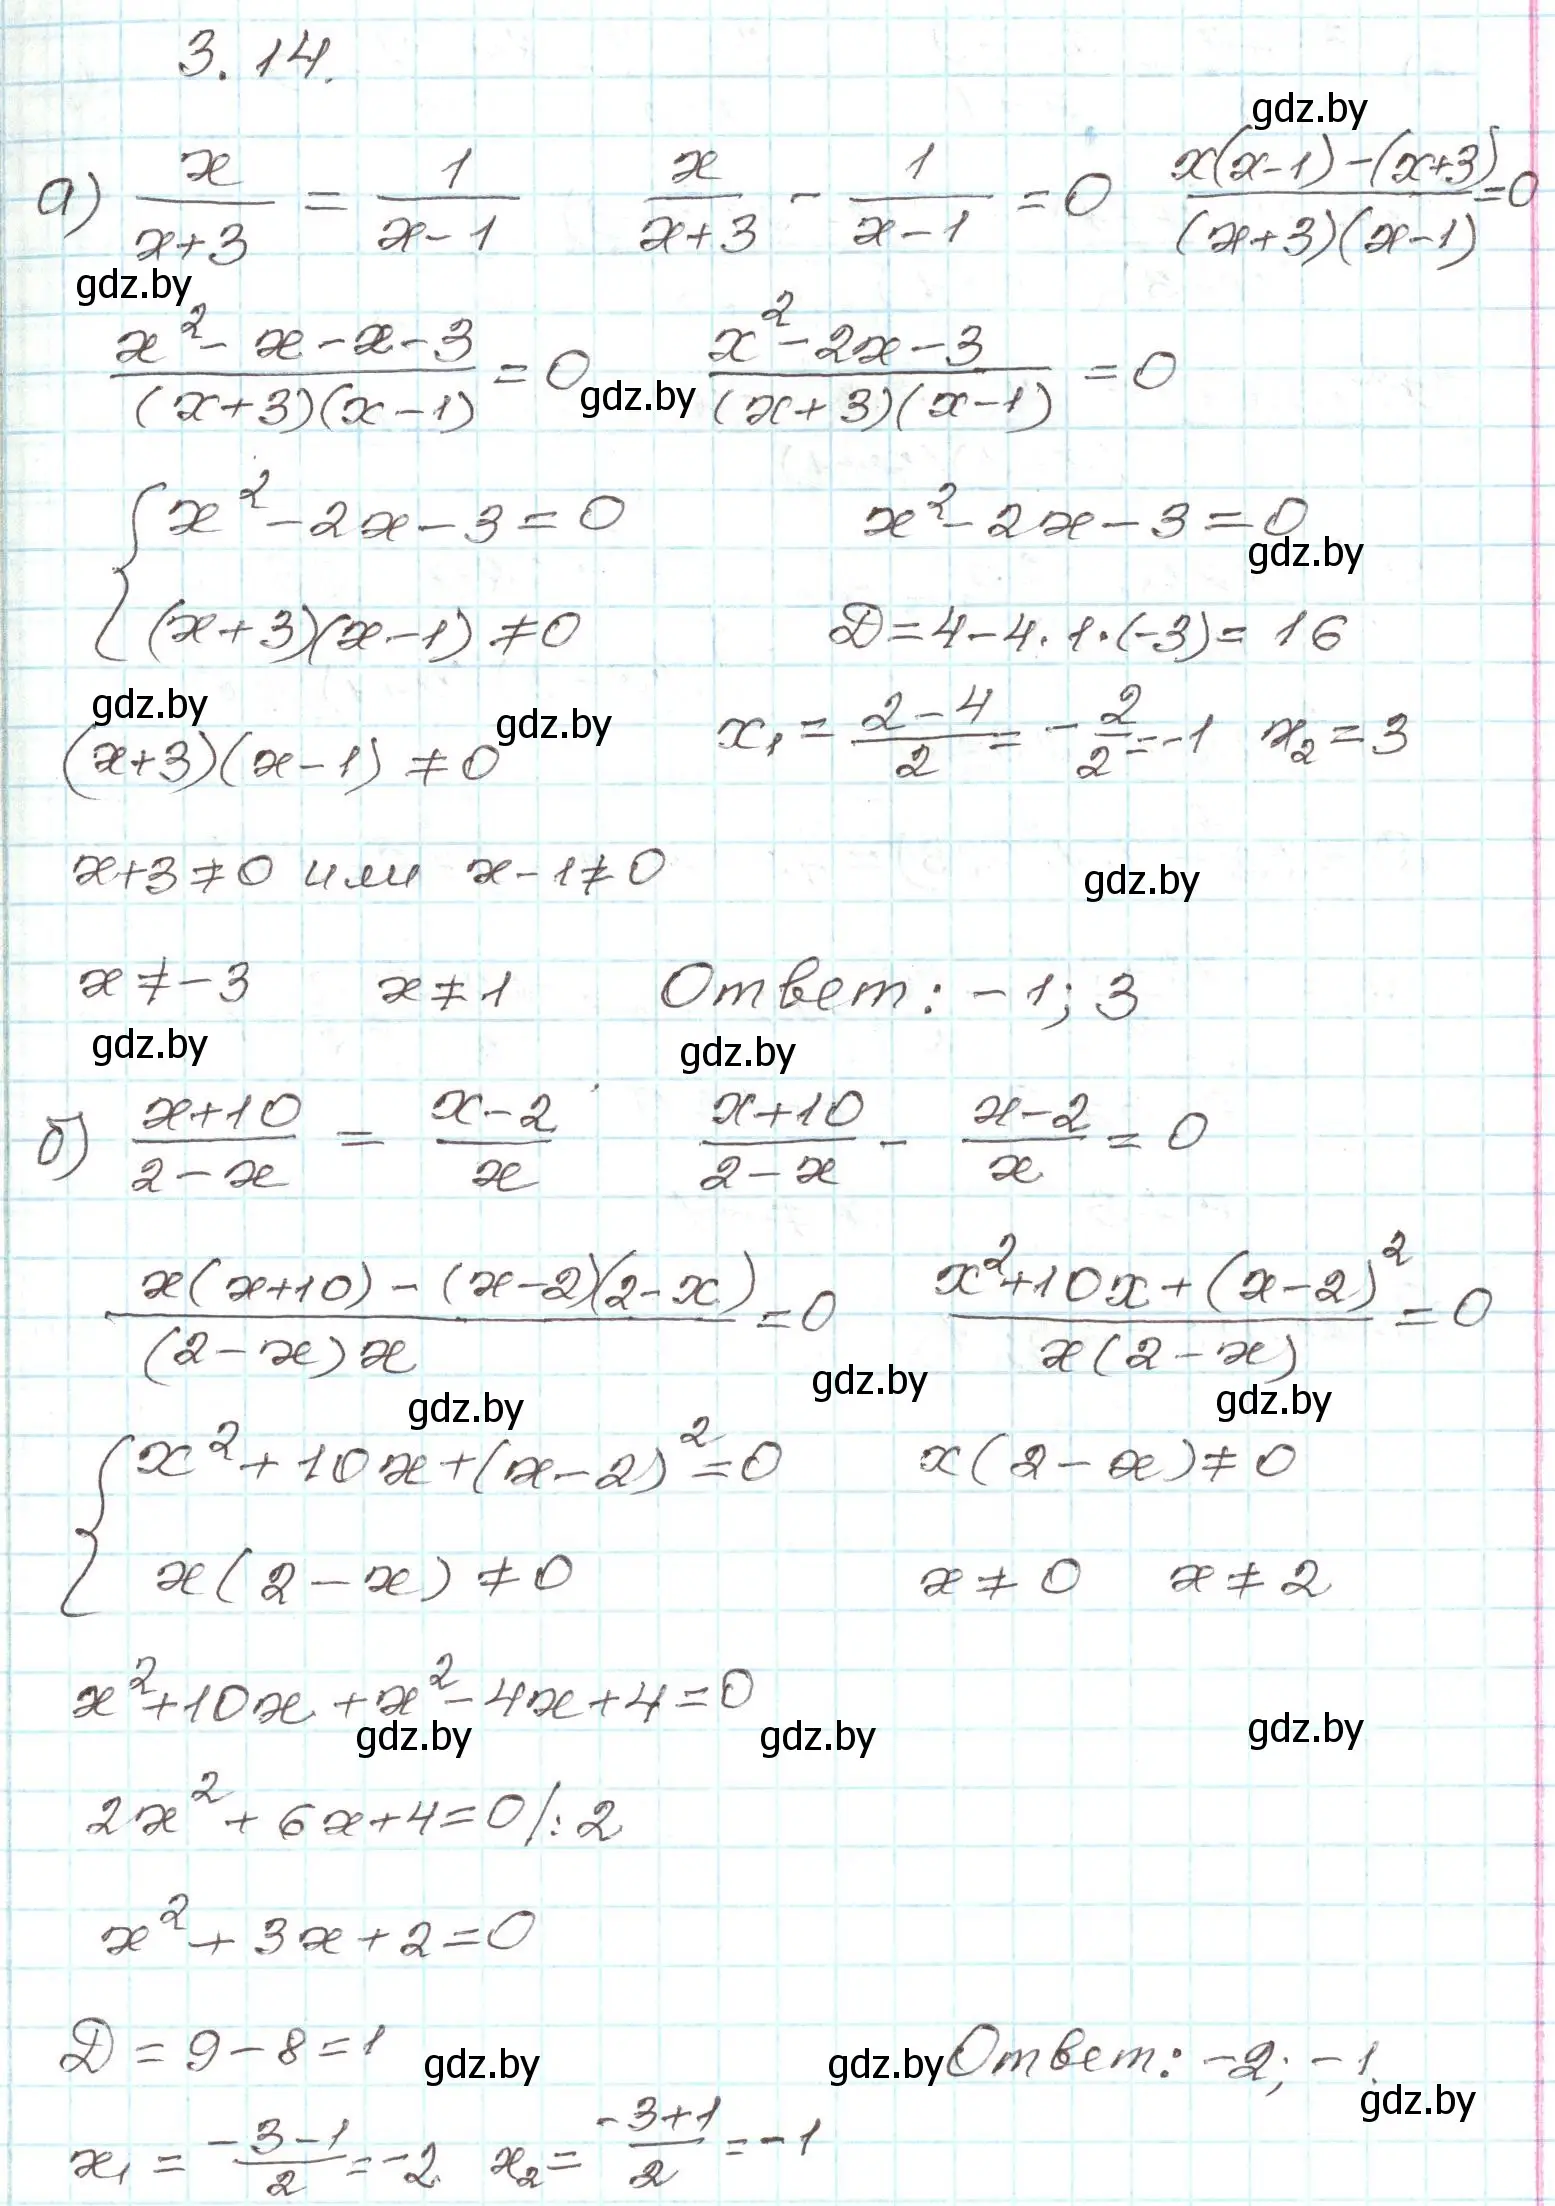 3.14.
gdz.by
а) x/(x+3) = 1/(x-1)    x/(x+3) - 1/(x-1) = 0    (x(x-1)-(x+3))/((x+3)(x-1)) = 0
gdz.by
(x²-x-x-3)/((x+3)(x-1)) = 0    gdz.by    (x²-2x-3)/((x+3)(x-1)) = 0
{ x²-2x-3=0    x²-2x-3=0
gdz.by
(x+3)(x-1)≠0    D=4-4·1·(-3)=16
gdz.by    gdz.by
(x+3)(x-1)≠0    x₁ = (2-4)/2 = -2/2 = -1    x₂=3
x+3≠0 или x-1≠0    gdz.by
x≠-3    x≠1    Ответ: -1; 3
gdz.by    gdz.by
б) (x+10)/(2-x) = (x-2)/x    (x+10)/(2-x) - (x-2)/x = 0
(x(x+10)-(x-2)(2-x))/((2-x)x) = 0    (x²+10x+(x-2)²)/(x(2-x)) = 0
gdz.by    gdz.by    gdz.by
{ x²+10x+(x-2)²=0    x(2-x)≠0
x(2-x)≠0    x≠0    x≠2
x²+10x+x²-4x+4=0
gdz.by    gdz.by    gdz.by
2x²+6x+4=0/:2
x²+3x+2=0
D=9-8=1    gdz.by    gdz.by    Ответ: -2; -1.
gdz.by
x₁ = (-3-1)/2 = -2    x₂ = (-3+1)/2 = -1